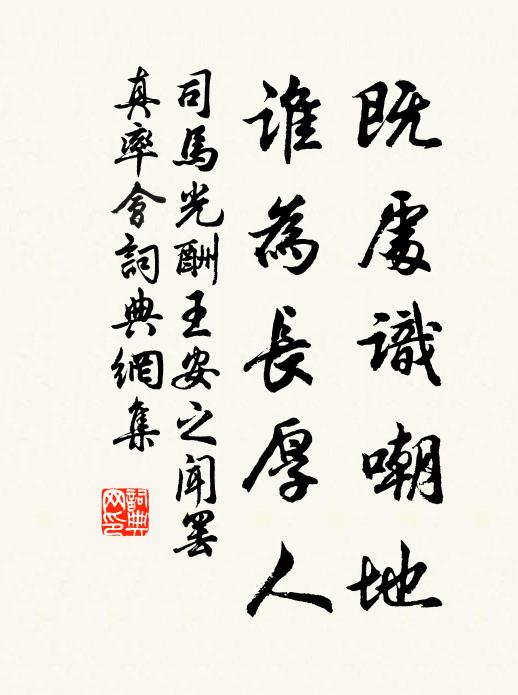 既處識嘲地
誰為長厚人
司馬光酬王安之聞罷
真率會詞典網集
詞典網印